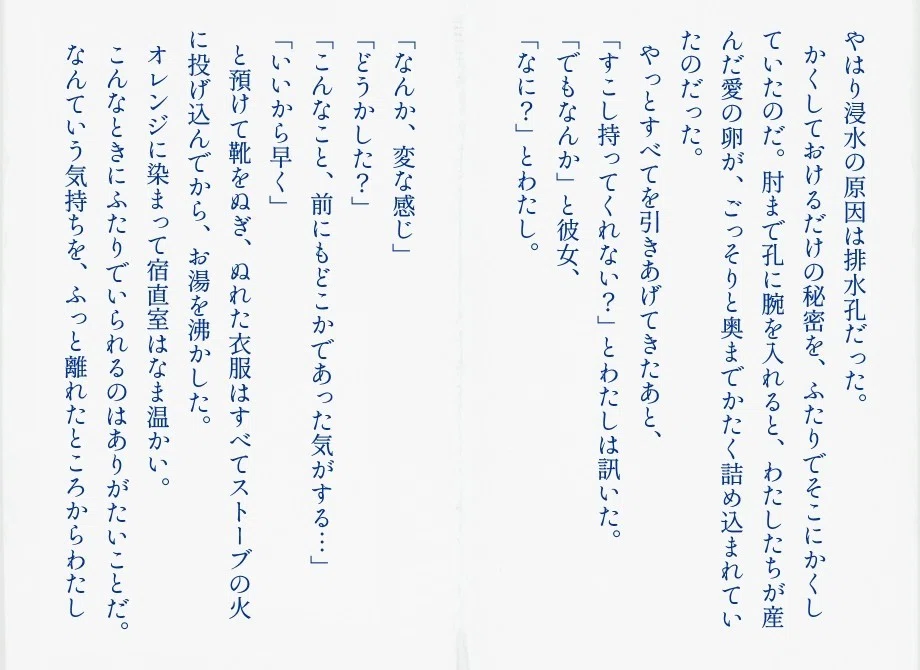 やはり浸水の原因は排水孔だった。
かくしておけるだけの秘密を、ふたりでそこにかくし
ていたのだ。肘まで孔に腕を入れると、わたしたちが産
んだ愛の卵が、ごっそりと奥までかたく詰め込まれてい
たのだった。
やっとすべてを引きあげてきたあと、
「すこし持ってくれない？」とわたしは訊いた。
「でもなんか」と彼女、
「なに？」とわたし。
「なんか、変な感じ」
「どうかした？」
「こんなこと、前にもどこかであった気がする…」
「いいから早く」
と預けて靴をぬぎ、ぬれた衣服はすべてストーブの火
に投げ込んでから、お湯を沸かした。
オレンジに染まって宿直室はなま温かい。
こんなときにふたりでいられるのはありがたいことだ。
なんていう気持ちを、ふっと離れたところからわたし